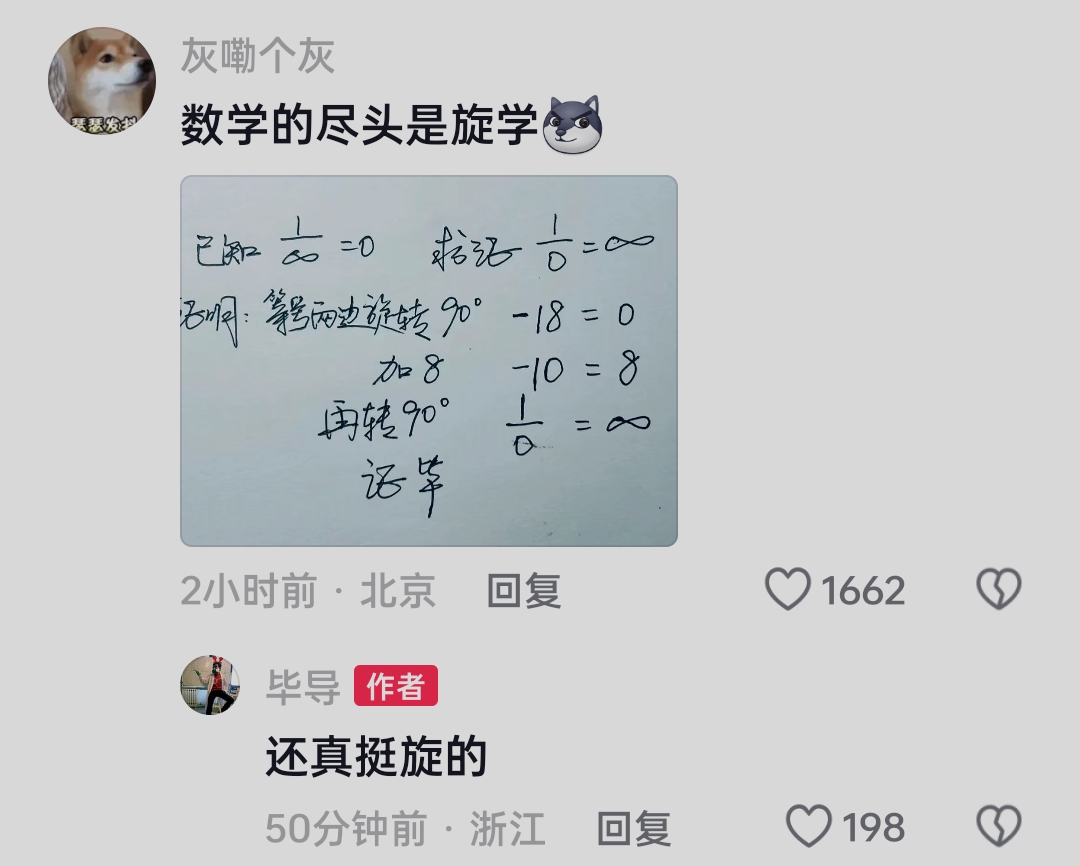 灰嘞个灰
数学的尽头是旋学
已知 1/∞ =0 求证 1/0 =∞
证明: 等号两边旋转90° -18 = 0
加8 -10 = 8
再转90° 1/0 = ∞
证毕
2小时前 · 北京 回复 1662
毕导 作者
还真挺旋的
50分钟前 · 浙江 回复 198